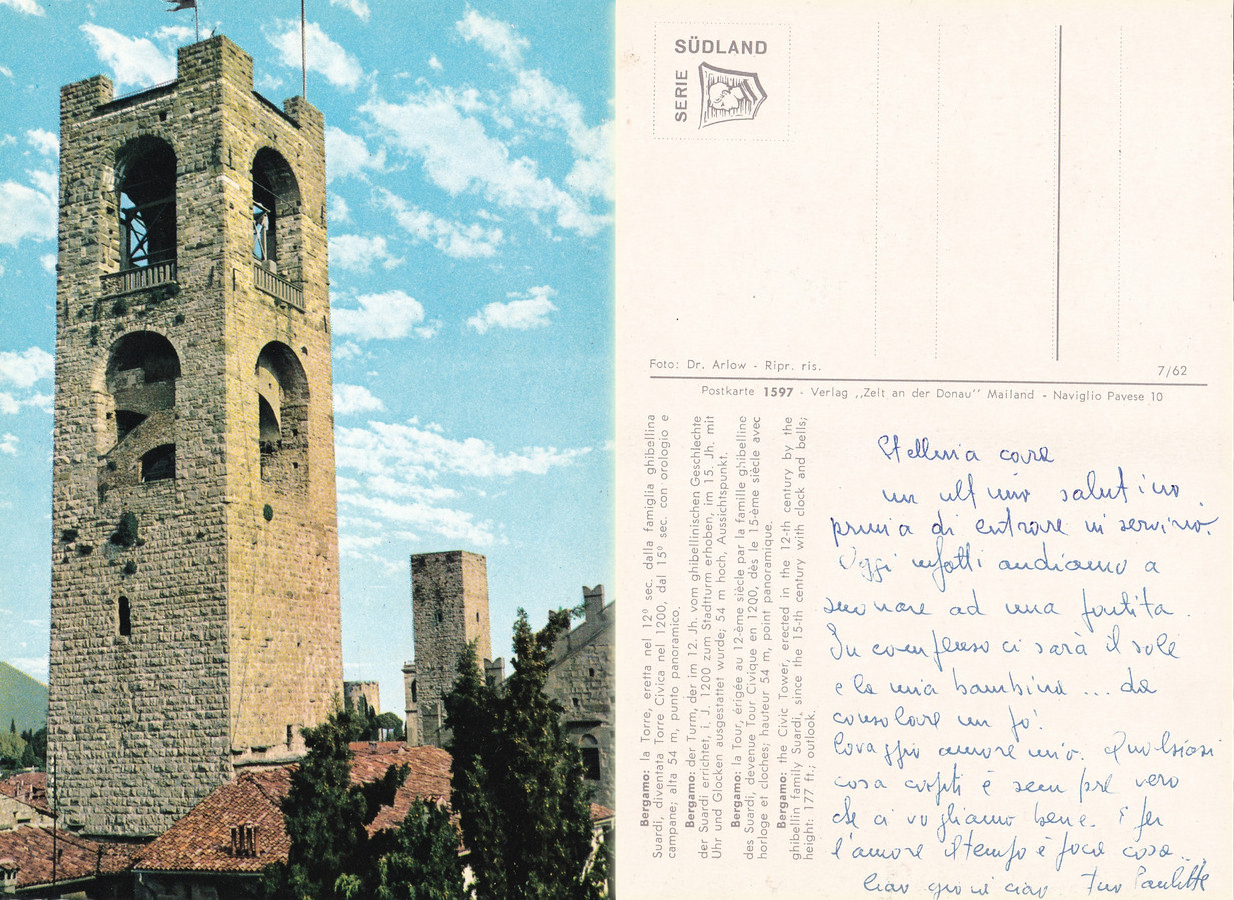 SÜDLAND
SERIE
Foto: Dr. Arlow - Ripr. ris.
7/62
Postkarte 1597 - Verlag ,,Zelt an der Donau'' Mailand - Naviglio Pavese 10
Bergamo: la Torre, eretta nel 12º sec. dalla famiglia ghibellina
Suardi, diventata Torre Civica nel 1200, dal 15º sec. con orologio e
campane; alta 54 m, punto panoramico.
Bergamo: der Turm, der im 12. Jh. vom ghibellinischen Geschlechte
der Suardi errichtet, i. J. 1200 zum Stadtturm erhoben, im 15. Jh. mit
Uhr und Glocken ausgestattet wurde; 54 m hoch, Aussichtspunkt.
Bergamo: la Tour, érigée au 12-ème siècle par la famille ghibelline
des Suardi, devenue Tour Civique en 1200, dès le 15-ème siècle avec
horloge et cloches; hauteur 54 m, point panoramique.
Bergamo: the Civic Tower, erected in the 12-th century by the
ghibellin family Suardi, since the 15-th century with clock and bells;
height: 177 ft.; outlook.
Stellina cara
un ultimo salutino
prima di entrare in servizio.
Oggi infatti andiamo a
suonare ad una
In compenso ci sarà il sole
e la mia bambina ... da
consolare un po'.
Coraggio amore mio. Qualsiasi
cosa capiti è sempre vero
che ci vogliamo bene. E per
l'amore il tempo è poca cosa...
Ciao ciao Tuo Paulette